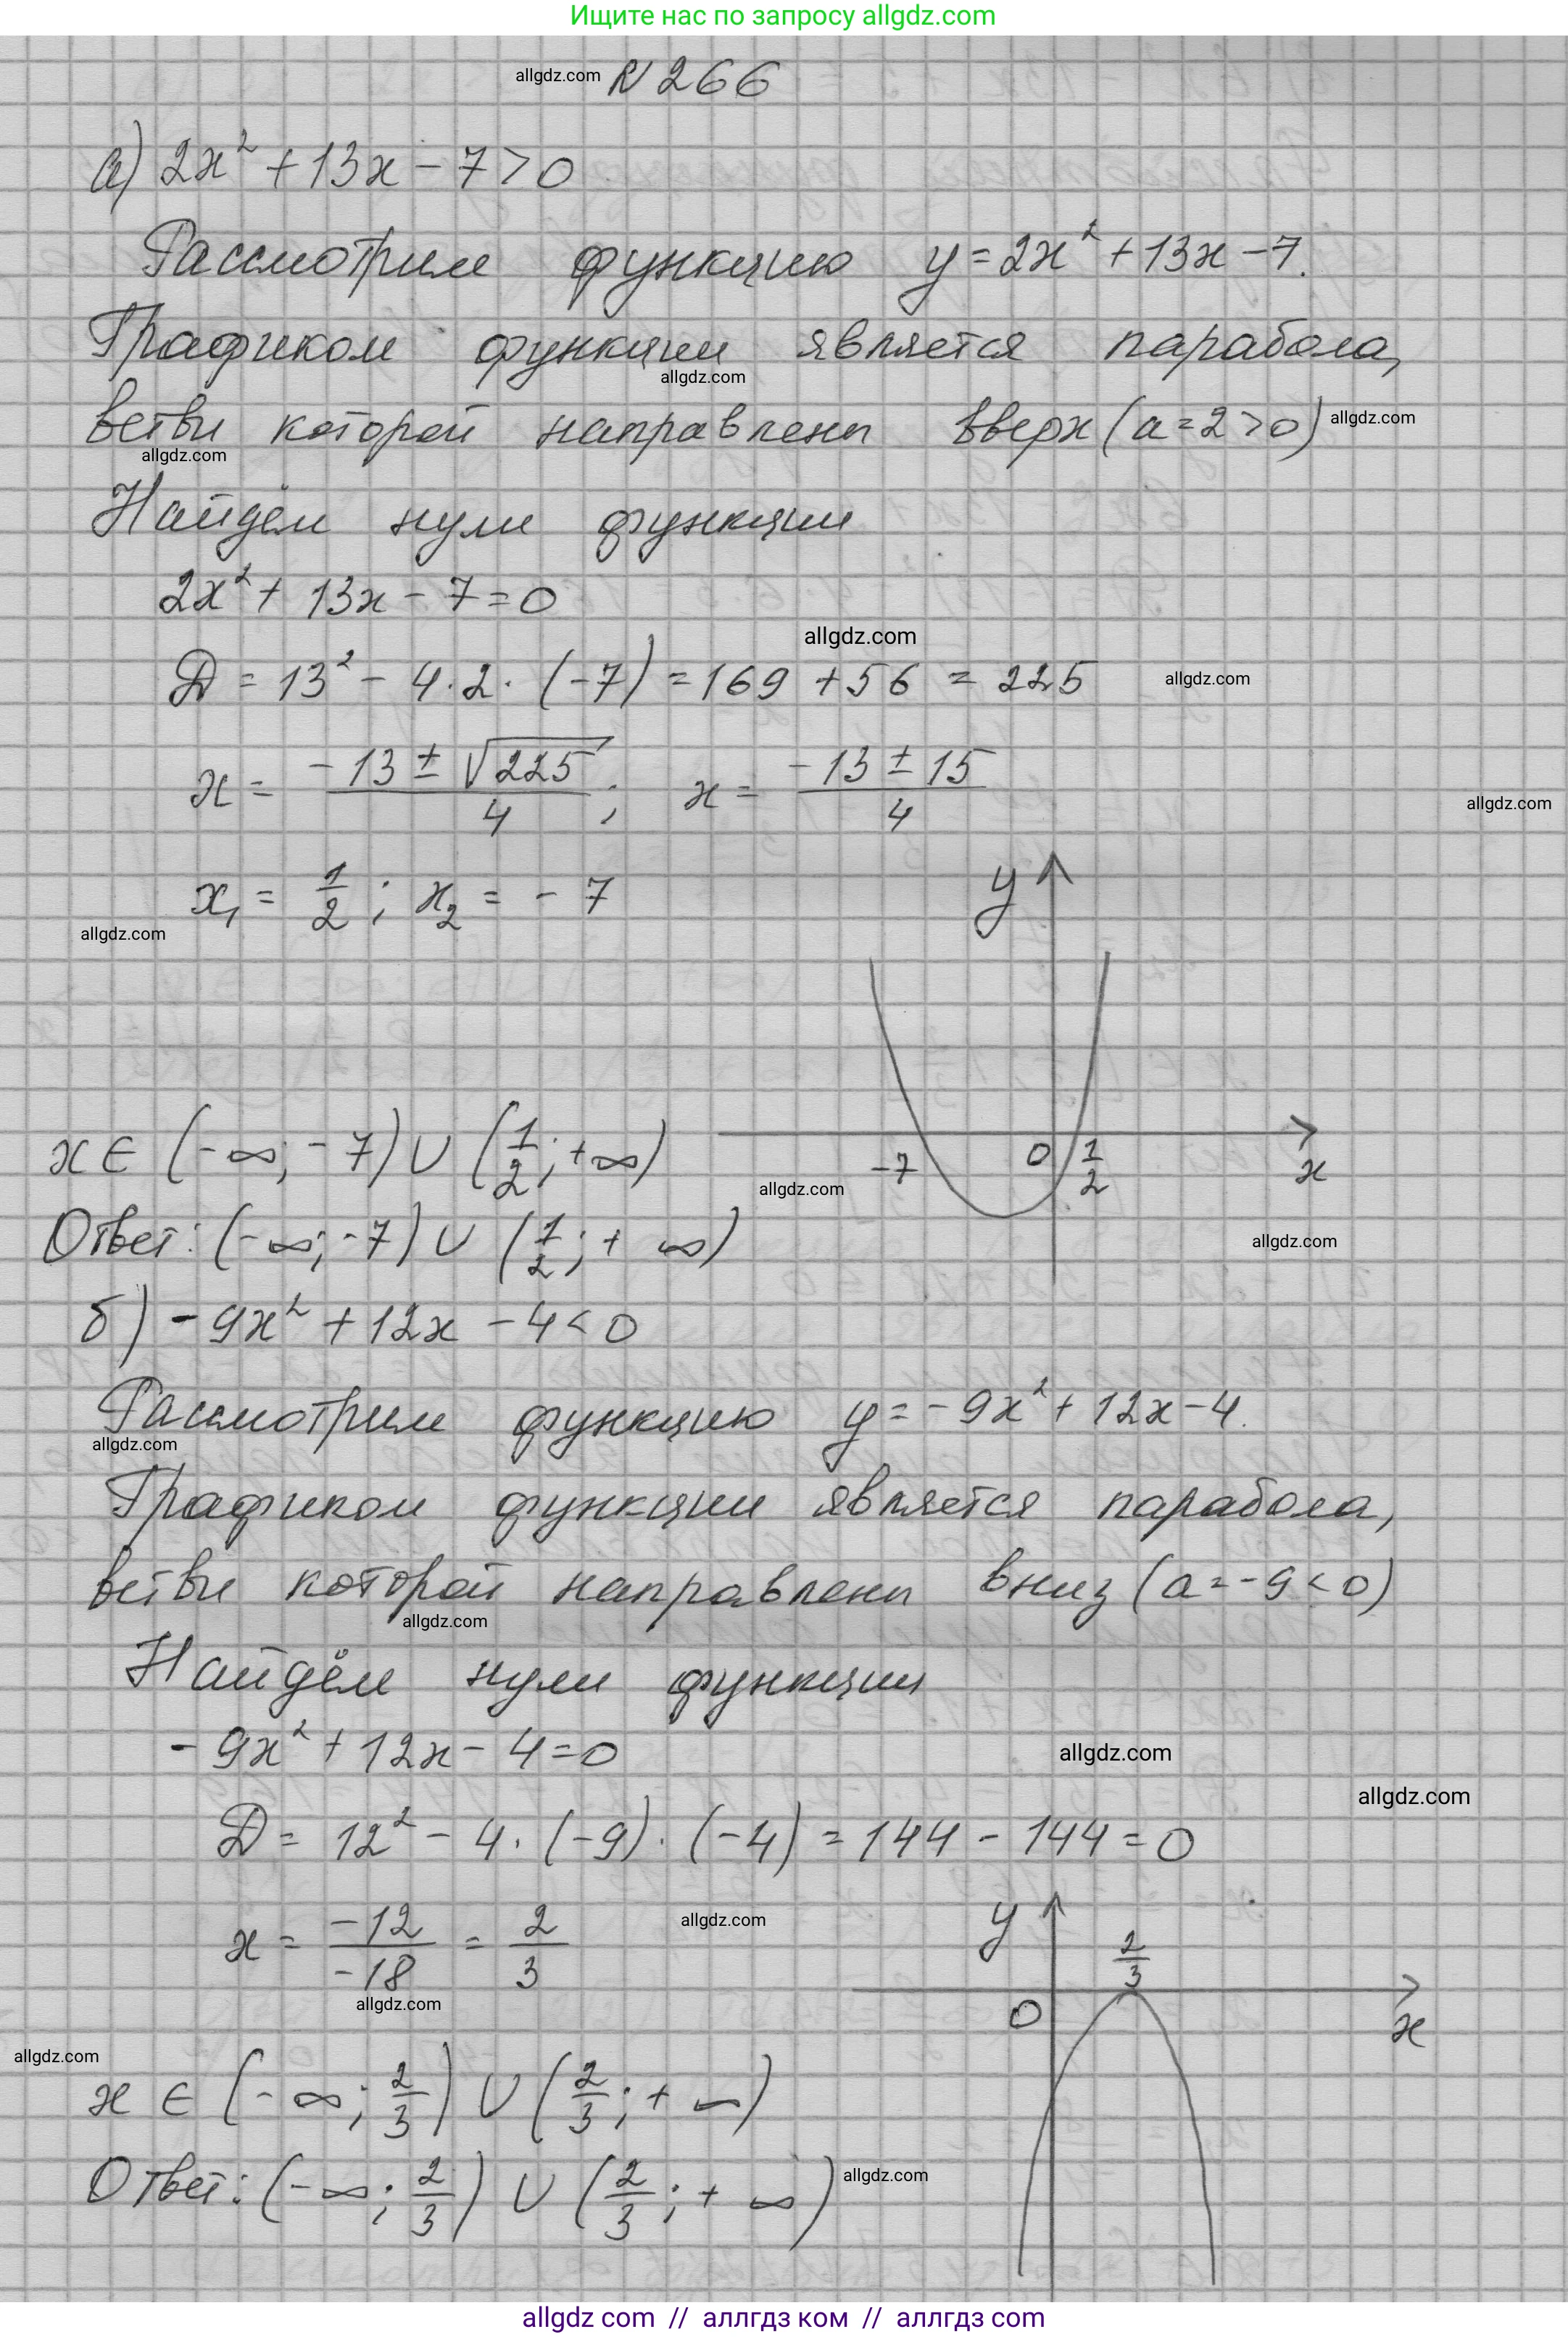 Ищите нас по запросу allgdz.com
allgdz.com N 266
а) 2x² + 13x - 7 > 0
Рассмотрим функцию y = 2x² + 13x - 7.
Графиком функции является парабола,
allgdz.com
ветви которой направлены вверх (a = 2 > 0) allgdz.com
allgdz.com
Найдём нули функции
2x² + 13x - 7 = 0
allgdz.com
D = 13² - 4 · 2 · (-7) = 169 + 56 = 225 allgdz.com
x = (-13 ± √225)/4 ; x = (-13 ± 15)/4
allgdz.com
x₁ = 1/2 ; x₂ = - 7
y
allgdz.com
x ∈ (-∞; -7) ∪ (1/2; +∞)
-7 0 1/2 x
allgdz.com
Ответ: (-∞; -7) ∪ (1/2; + ∞)
allgdz.com
б) - 9x² + 12x - 4 < 0
Рассмотрим функцию y = - 9x² + 12x - 4.
allgdz.com
Графиком функции является парабола,
ветви которой направлены вниз (a = -9 < 0)
allgdz.com
Найдём нули функции
- 9x² + 12x - 4 = 0
allgdz.com
allgdz.com
D = 12² - 4 · (-9) · (-4) = 144 - 144 = 0
x = -12/-18 = 2/3
allgdz.com
y 2/3
allgdz.com
0 x
allgdz.com
x ∈ (-∞; 2/3) ∪ (2/3; + ∞)
Ответ: (-∞; 2/3) ∪ (2/3; + ∞) allgdz.com
allgdz com // аллгдз ком // аллгдз com